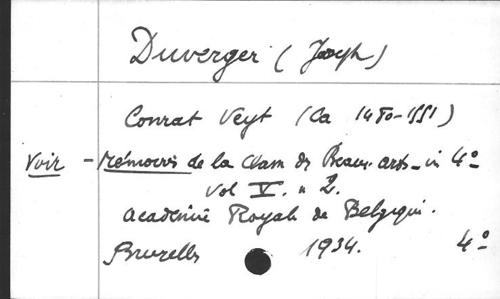 Duverger (Joseph)
Conrat Veyt (Ca 1480-1551)
Voir - Mémoires de la Classe des Beaux-arts - in 4°
Vol V. n 2.
Académie Royale de Belgique.
Bruxelles 1934. 4°